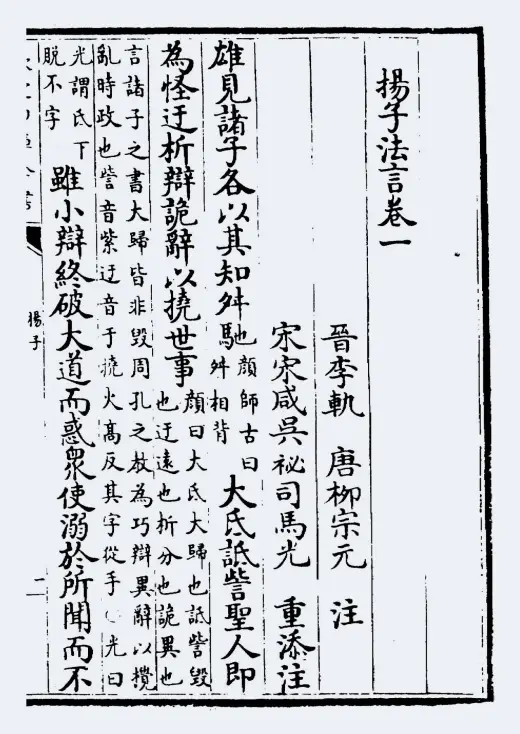 揚子法言卷一
晉李軌 唐柳宗元 注
宋宋咸吳祕司馬光 重添注
雄見諸子各以其知舛馳顔師古曰舛相背大氐詆訾聖人即
為怪迂析辯詭辭以撓世事顔曰大氐大歸也詆訾毀也迂遠也析分也詭異也
言諸子之書大歸皆非毀周孔之教為巧辯異辭以攪
亂時政也訾音紫迂音于撓火髙反其字從手 光曰
光謂氐下脱不字雖小辯終破大道而惑衆使溺於所聞而不
揚子
二